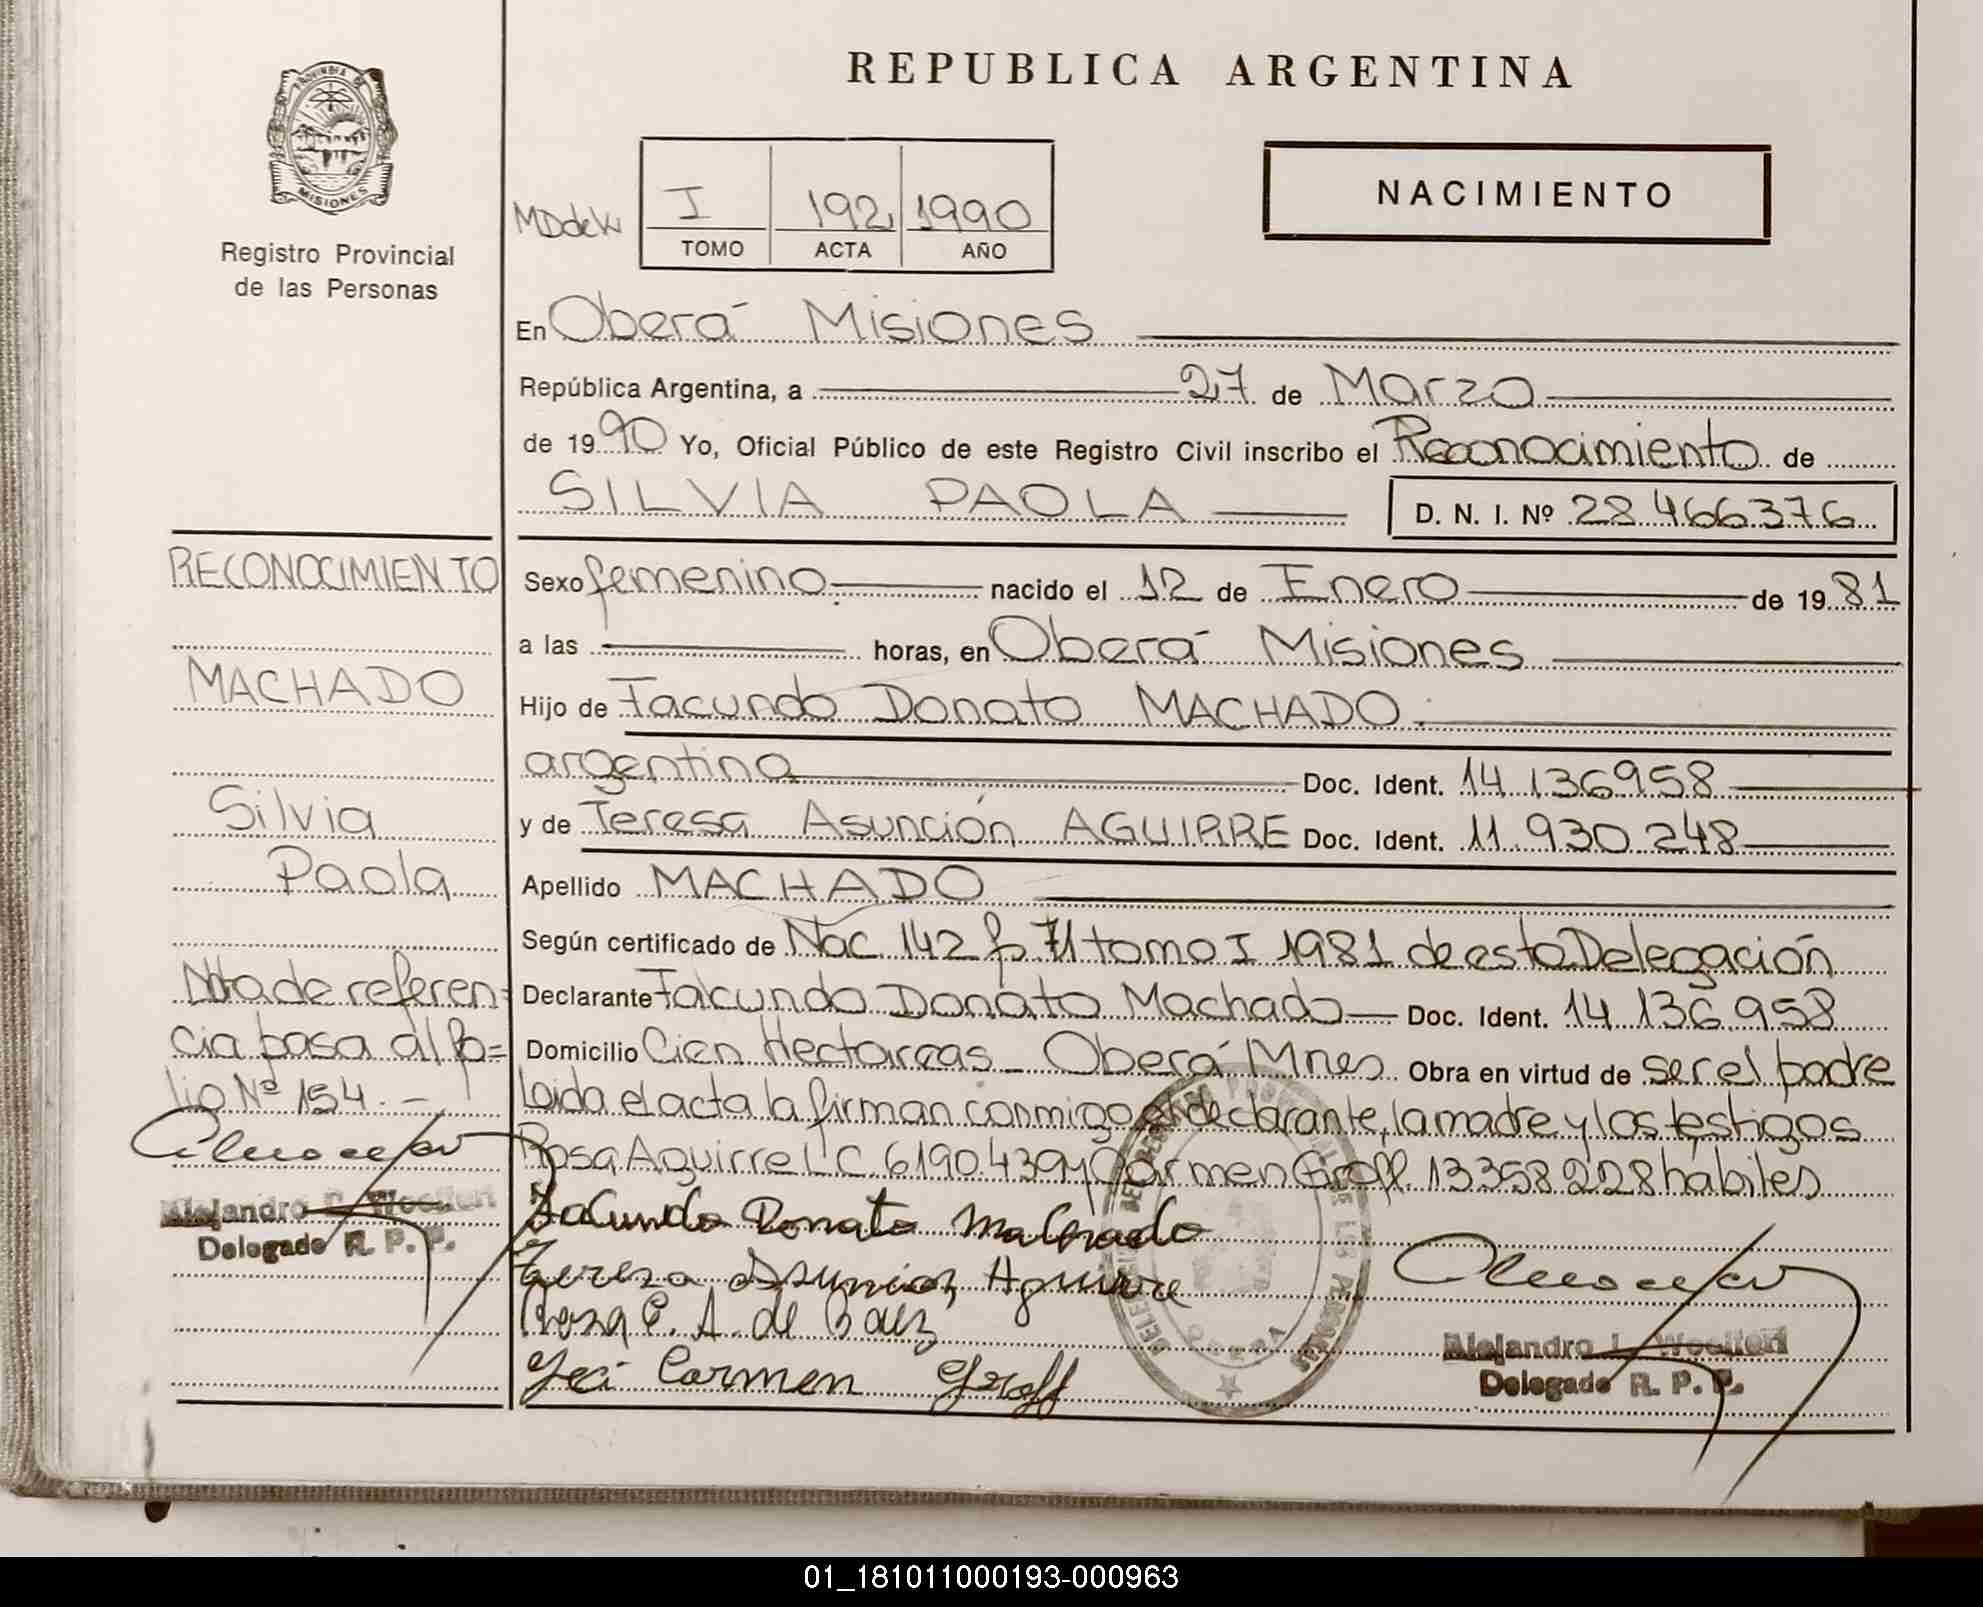 REPUBLICA ARGENTINA
PROVINCIA DE
MISIONES
Registro Provincial
de las Personas
I 192 1990
TOMO ACTA AÑO
NACIMIENTO
En Oberá Misiones
República Argentina, a 27 de Marzo
de 1990 Yo, Oficial Público de este Registro Civil inscribo el Reconocimiento de
SILVIA PAOLA D. N. I. Nº 28 466376
RECONOCIMIENTO
MACHADO
Silvia
Paola
Nota de referen=
cia pasa al fo=
lio Nº 154.-
Alejandro Woelfert
Delegado R. P. P.
Sexo femenino nacido el 12 de Enero de 1981
a las horas, en Oberá Misiones
Hijo de Facundo Donato MACHADO.
argentino Doc. Ident. 14.136958
y de Teresa Asunción AGUIRRE Doc. Ident. 11.930.248
Apellido MACHADO
Según certificado de Nac. 142 fo 71 tomo I 1981 de esta Delegación
Declarante Facundo Donato Machado Doc. Ident. 14.136.958
Domicilio Cien Hectareas - Oberá Mnes. Obra en virtud de ser el padre
Leida el acta la firman conmigo el declarante, la madre y los testigos
Rosa Aguirre L C. 6190.439 y Carmen Groff 13358228 habiles
Facundo Donato Machado
Teresa Asuncion Aguirre
Rosa E. A. de Baez
Carmen Groff
OBERA
Alejandro Woelfert
Delegado R. P. P.
01_181011000193-000963